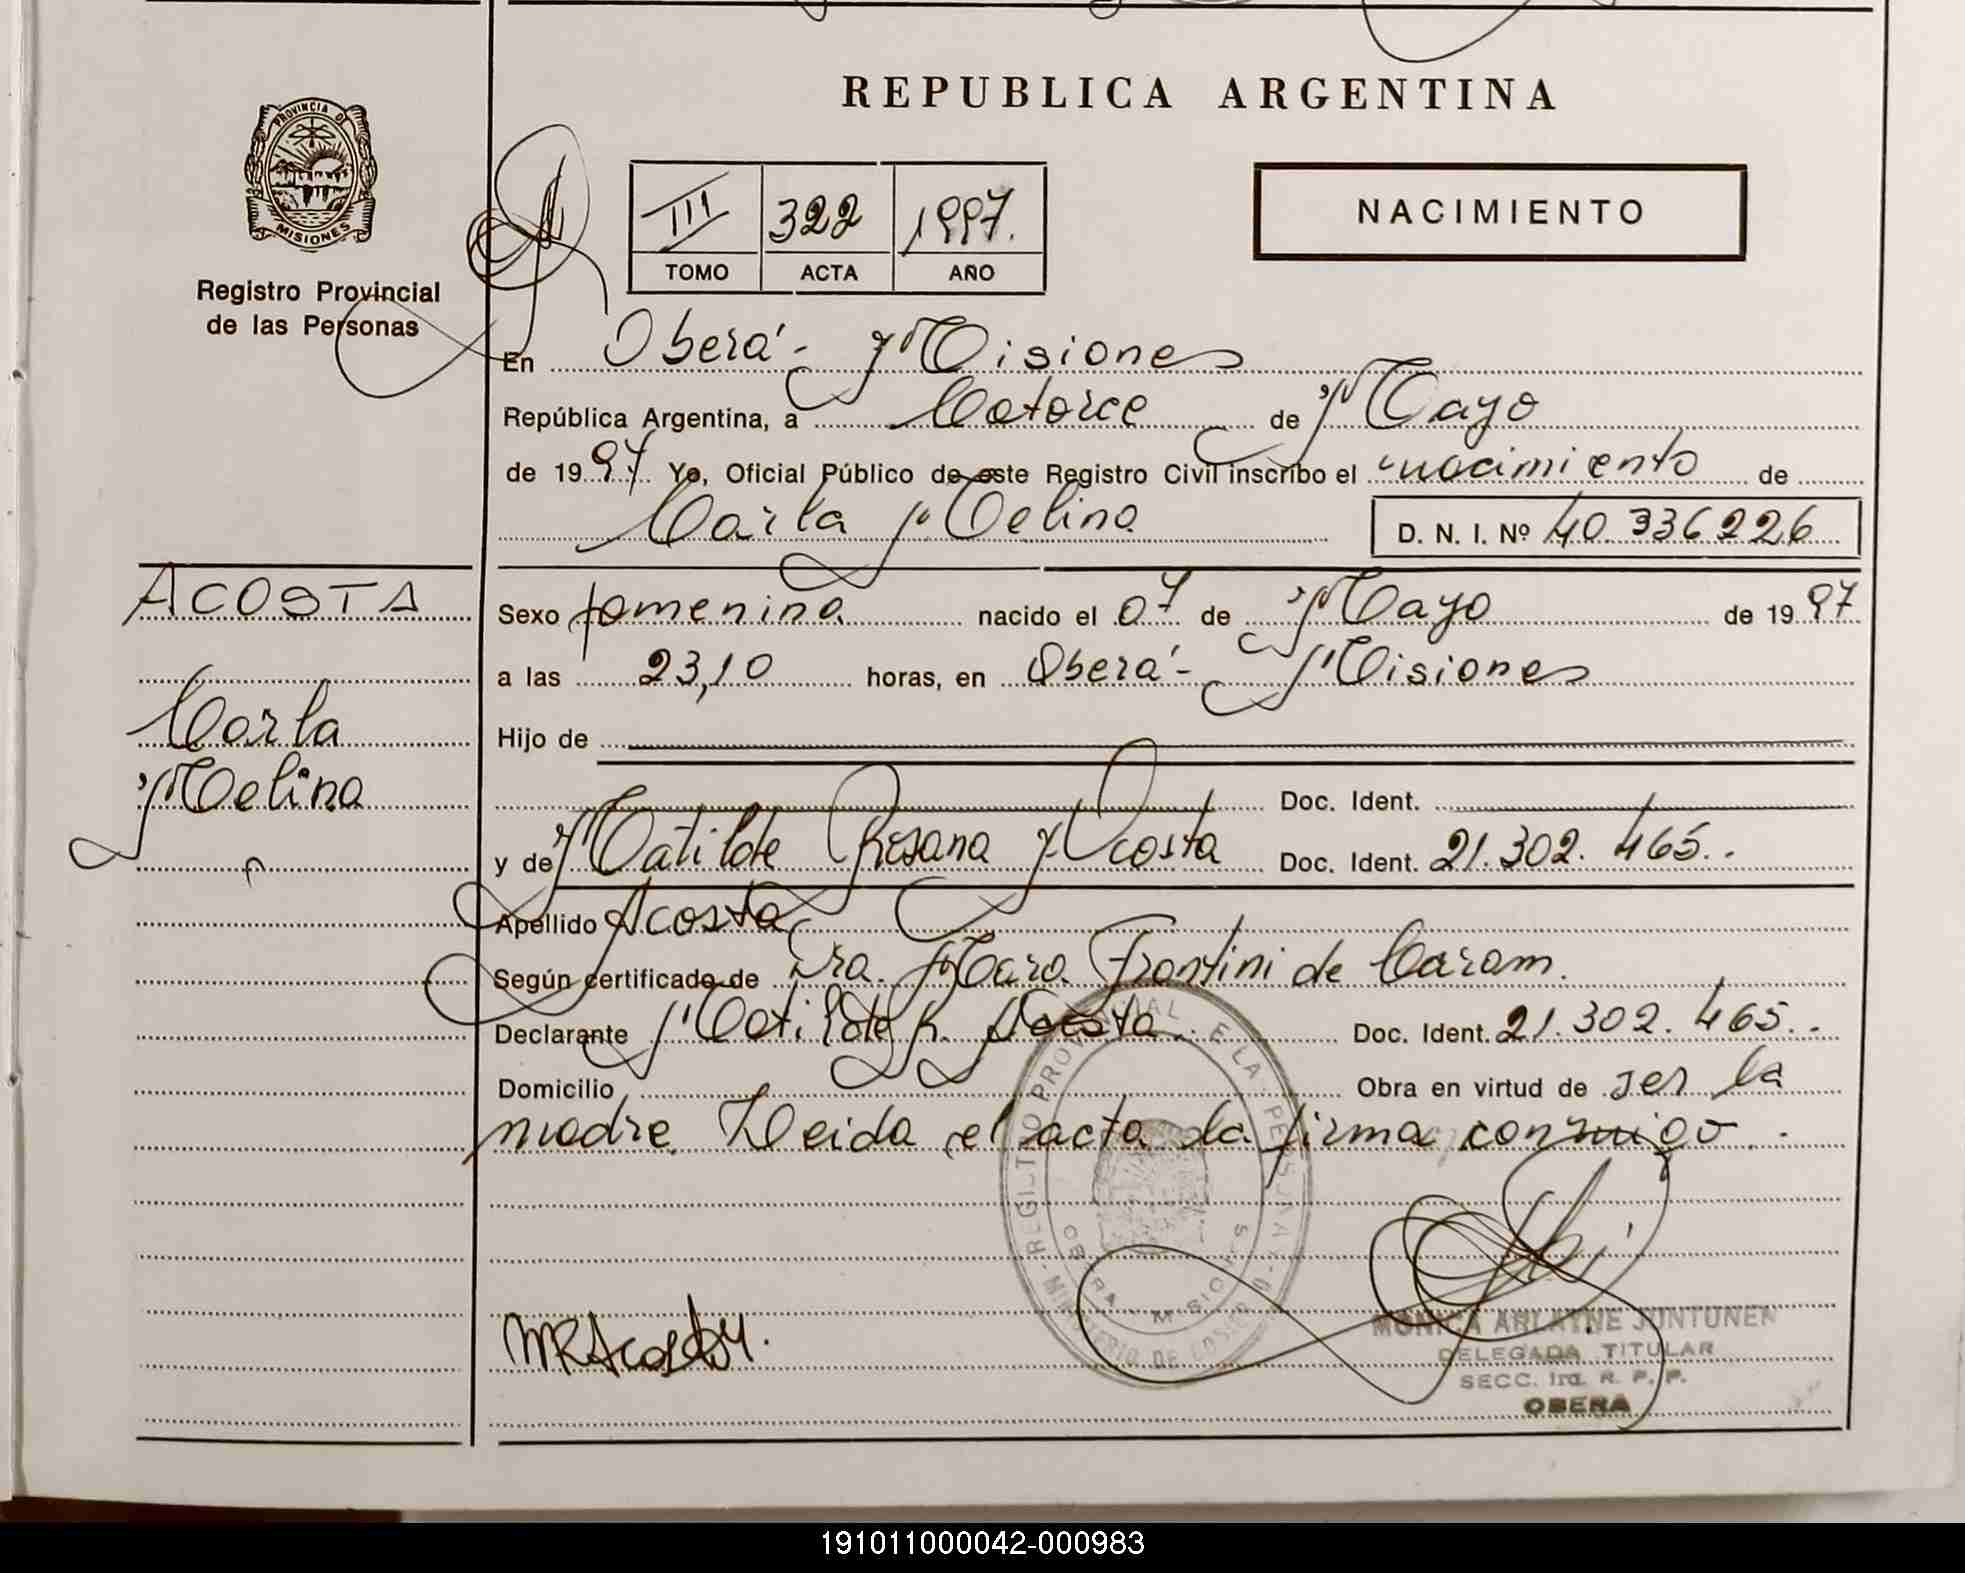 REPUBLICA ARGENTINA
PROVINCIA D
MISIONES
Registro Provincial
de las Personas
III 322 1997.
TOMO ACTA AÑO
NACIMIENTO
En Oberá - Misiones
República Argentina, a Catorce de Mayo
de 1997. Yo, Oficial Público de este Registro Civil inscribo el nacimiento de
Carla Melina D. N. I. Nº 40.336.226
ACOSTA
Carla
Melina
Sexo femenino nacido el 07 de Mayo de 1997
a las 23,10 horas, en Oberá - Misiones
Hijo de
Doc. Ident.
y de Matilde Rosana Acosta Doc. Ident. 21.302.465..
Apellido Acosta
Según certificado de Dra. Mara Frontini de Caram.
Declarante Matilde R. Acosta. Doc. Ident. 21.302.465..
Domicilio Obra en virtud de ser la
madre. Leida el acta la firma conmigo..
MRAcosta
MONICA ARLAYNE JUNTUNEN
DELEGADA TITULAR
SECC. 1ra. R. P. P.
OBERA
191011000042-000983